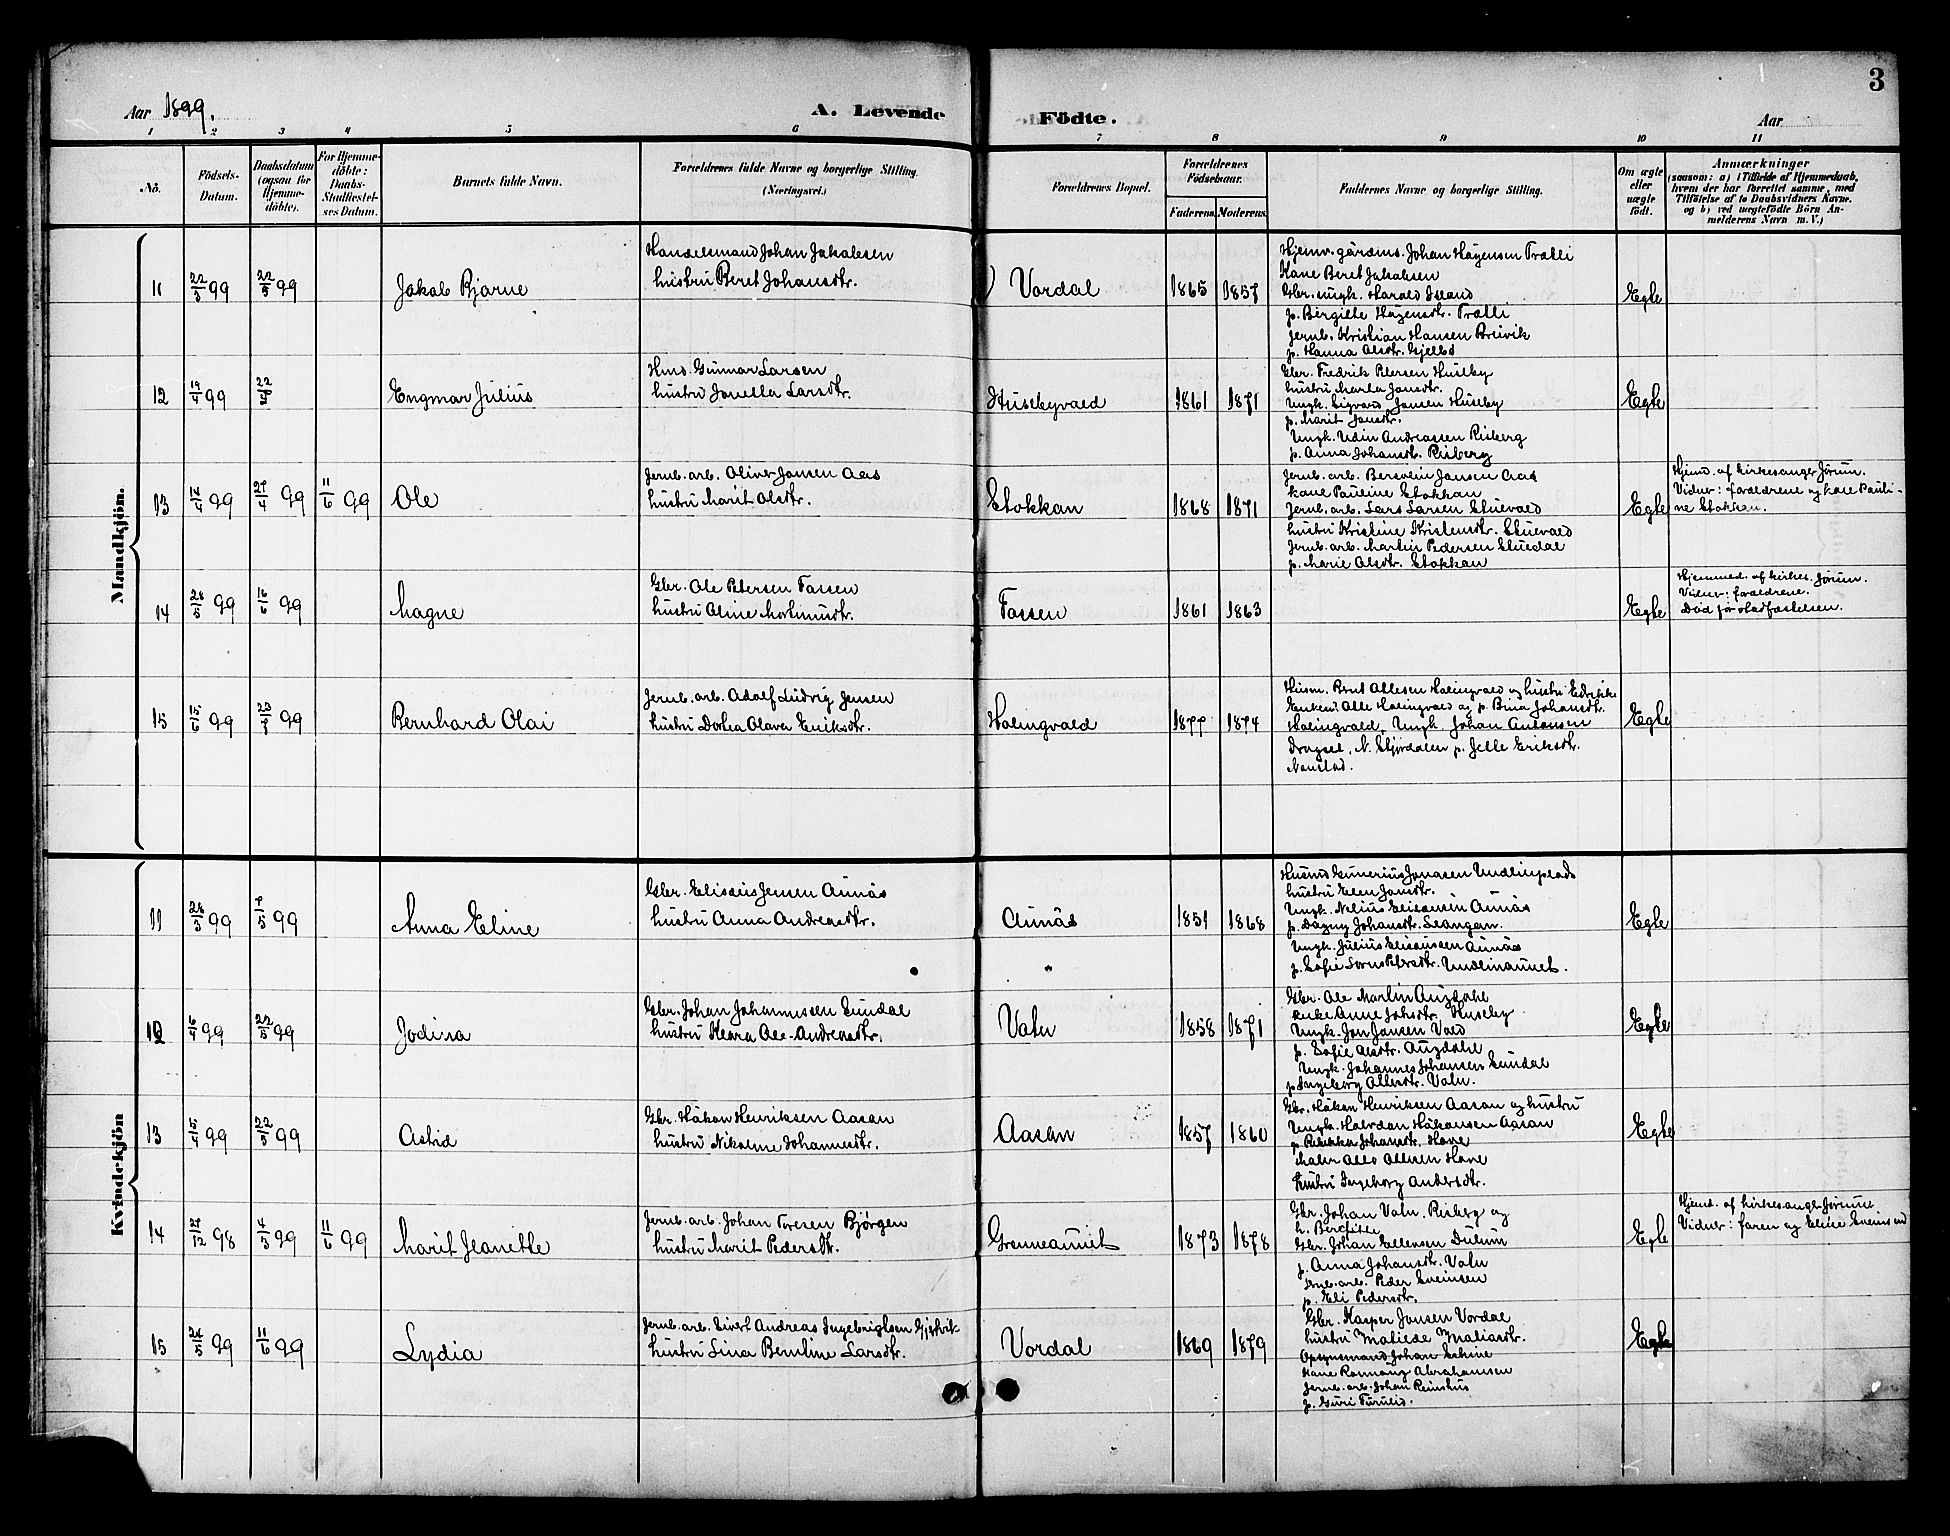 3
Aar 1899.
A. Levende Födte.
Aar
1 2 3 4 5 6 7 8 9 10 11
No.
Födsels-Datum.
Daabsdatum (ogsaa for Hjemme-döbte).
For Hjemme-döbte: Daabs-Stadfæstel-ses Datum.
Barnets fulde Navn.
Forældrenes fulde Navne og borgerlige Stilling. (Næringsvei.)
Forældrenes Bopæl.
Forældrenes Födselsaar.
Faderens. Moderens.
Faddernes Navne og borgerlige Stilling.
Om ægte eller uægte födt.
Anmærkninger
(saasom: a) i Tilfælde af Hjemmedaab,
hvem der har forrettet samme, med
Tilföielse af to Daabsvidners Navne.
og b) ved uægtefödte Börn An-
melderens Navn m. V.)
Mandkjön.
11 22/3 99 22/5 99 Jakob Bjarne
Handelsmand Johan Jakobsen
hustru Beret Johansdtr.
Vordal 1865 1857
Hjemv. gårdms. Johan Høyensen Trætli
Kone Beret Jakobsen
Gbr. ungk. Harald Island
p. Birgitte Høyensdtr. Trætli
Jernb. Kristian Hansen Breivik
p. Hanna Olsdtr. Gjelbo
Egte
12 19/4 99 22/5 Engmar Julius
Hmd. Gunnar Larsen
hustru Janetta Larsdtr.
Husebyvald 1861 1871
Gbr. Fredrik Petersen Huseby
hustru Marta Jonsdtr.
Ungk. Sigvard Jonsen Huseby
p. Marit Jonsdtr.
Ungk. Udin Andreassen Risberg
p. Anna Johansdtr. Risberg
Egte
13 12/4 99 27/4 99 11/6 99 Ole
Jernb. arb. Oliver Jonsen Aas
hustru Marit Olsdtr.
Stokkan 1868 1871
Jernb. arb. Bersvein Jonsen Aas
kone Pauline Stokkan
Jernb. arb. Lars Larsen Stuevald
hustru Kristine Kristensdtr. Stuevald
Jernb. arb. Martin Pedersen Stuedal
p. Marie Olsdtr. Stokkan
Egte
Hjemd. af kirkesanger Jørum.
Vidner: forældrene og kone Pauli-
ne Stokkan.
14 28/5 99 16/6 99 Magne
Gbr. Ole Petersen Fossen
hustru Oline Mortinusdtr.
Fossen 1861 1863
Egte
Hjemmed. af kirkes. Jørum.
Vidner: forældrene.
Död för stadfæstelsen.
15 15/6 99 99 Bernhard Olai
Jernb. arb. Adolf Ludvig Jensen
hustru Dortea Olava Eriksdtr.
Holingvald 1877 1874
Husm. Bernt Ollesen Holingvald og hustru
Enkem. Olle Holingvald og p. Bina Johansdtr.
Holingvald, Ungk. Johan Antonsen
N. Stjørdalen p. Jelle Eriksdtr.
Egte
Kvindekjön
11 28/3 99 7/5 99 Anna Eline
Gbr. Elisæus Jensen Aunås
hustru Anna Andreasdtr.
Aunås 1851 1868
Husmd Gunerius Jonasen Undlinplads
hustru Elen Jonsdtr.
Ungk. Nelius Elisæusen Aunås
p. Dagny Johansdtr. Leangen.
Ungk. Julius Elisæusen Aunås
p. Sofie Undlinaunet.
Egte
12 6/4 99 22/5 99 Jodina
Gbr. Johan Johannessen Sundal
hustru Klara Andreasdtr.
Valn 1858 1871
Gbr. Ole Martin Augdahl
enke Anne Johsdtr. Huseby
Ungk. Jon Jonsen Vald
p. Sofie Olsdtr. Augdahl
Ungk. Johannes Johansen Sundal
p. Ingeborg Ollesdtr. Valn.
Egte
13 15/4 99 22/5 99 Astrid
Gbr. Håkon Henriksen Aasan
hustru Nikoline Johannesdtr.
Aasan 1857 1860
Gbr. Håkon Henriksen Aasan og hustru
Ungk. Halvdan Håkonsen Aasan
p. Rebekka Johansdtr. Hove
Maler Otto Ottesen Hove
hustru Ingeborg Andersdtr.
Egte
14 27/12 98 4/5 99 11/6 99 Marit Jeanette
Jernb. arb. Johan Toresen Bjørgen
hustru Marit Pedersdtr.
Grønneaunet 1873 1878
Gbr. Johan Valn. Risberg og
h. Bergitte
Gbr. Johan Ellevsen Dulum
p. Anna Johansdtr. Valn
Jernb. arb. Peder Sveinsen
p. Eli Pedersdtr.
Egte
Hjemd. af kirkesanger Jørum.
Vidner: faren og Eline
15 24/5 99 11/6 99 Lydia
Jernb. arb. Sivert Andreas Ingebrigtsen Gjetvik
hustru Lina Bentine Larsdtr.
Vordal 1869 1879
Gbr. Kasper Jonsen Vordal
hustru Matilde
Opsynsmand Johan
Kone Abrahamsen
Jernb. arb. Johan
p. Guri Furulid.
Egte